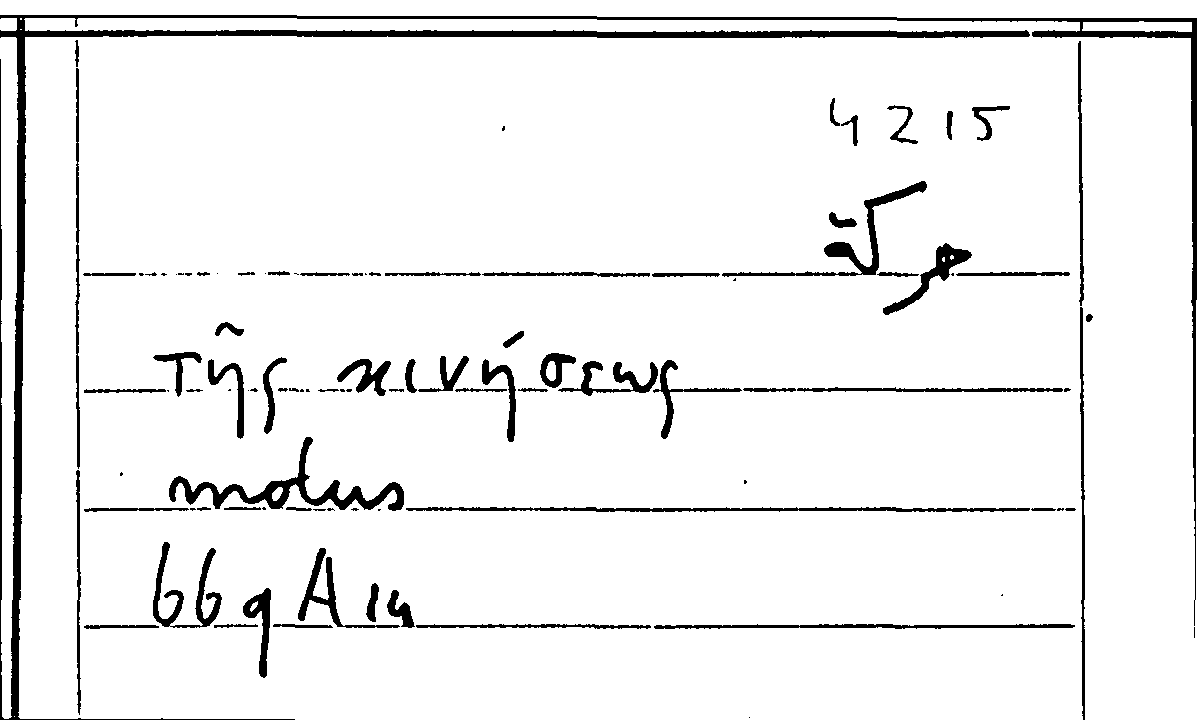 4215
τῆς κινήσεως
motus
66 q A 14